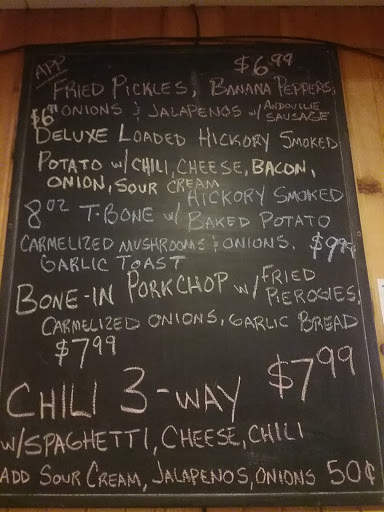 APP $6.99
FRIED PICKLES, BANANA PEPPERS,
ONIONS & JALAPENOS w/ ANDOUILLE SAUSAGE
$6.99 DELUXE LOADED HICKORY SMOKED
POTATO w/ CHILI, CHEESE, BACON,
ONION, SOUR CREAM
8 OZ T-BONE w/ HICKORY SMOKED BAKED POTATO
CARMELIZED MUSHROOMS & ONIONS. $9.99
GARLIC TOAST
BONE-IN PORKCHOP w/ FRIED PIEROGIES,
CARMELIZED ONIONS, GARLIC BREAD
$7.99
CHILI 3-WAY $7.99
W/SPAGHETTI, CHEESE, CHILI
ADD SOUR CREAM, JALAPENOS, ONIONS 50¢